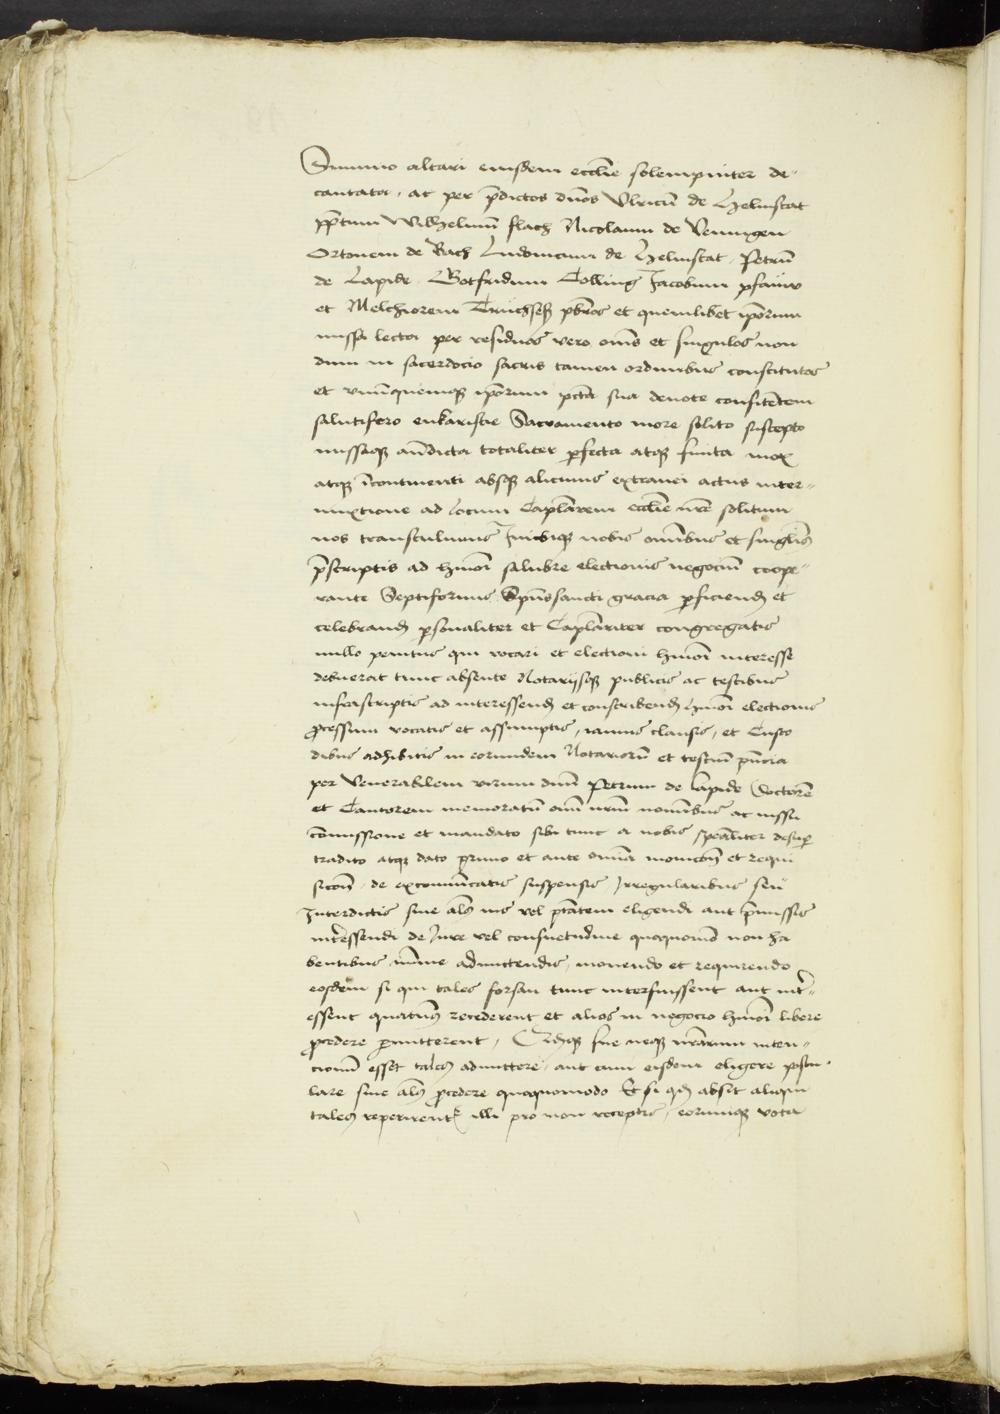 Summo altari eiusdem ecclīe solempniter de-
cantata, ac per p̄dictos dn̄os Vlricū de Helmstat
pp̄tum Wilhelmū flach Nicolaum de Veningen
Ortonem de Bach Ludouicum de Helmstat, Petrū
de Lapide Gotfridum Colling Jacobum pfaüw
et Melchiorem Truchseß pb̄ros et quemlibet ip̄orum
missa lecta per residuos vero om̄s et singulos non
dum in sacerdocio sacris tamen ordinibus constitutos
et vnūquemq̨ ip̄orum pctā sua deuote confitētem
salutifero eukaristie Sacramento more solito suscepto
missaq̨ an̄dicta totaliter ꝑfecta atq̨ finita mox
atq̨ īcontinenti absq̨ alicuius extranei actus inter-
mixtione ad locum Caplārem ecclīe nr̄e solitum
nos transtulimus Inibiq̨ nobis om̄ibus et singl̄is
p̄scriptis ad hm̄oi salubre electionis negociū coope-
rante Septiformis Sp̄ussancti gracia ꝑficiend̨ et
celebrand̨ ꝑsonaliter et Caplāriter congregatis
nullo penitus qui vocari et electioni hm̄oi interesse
debuerat tunc absente Notarijsq̨ publicis ac testibus
infrascriptis ad interessend̨ et conscribend̨ hm̄oi electionis
ꝓcessum vocatis et assumptis, ianuis clausis, et Custo
dibus adhibitis in eorundem Notariorū et testiū pn̄cia
per Venerabilem virum dnū Petrum de lapide Doctorē
et Cantorem memoratū om̄ nr̄m nominibus ac iussu
cōmissione et mandato sibi tunc a nobis spēaliter desuꝑ
tradito atq̨ dato primo et ante omnia monicōn̄ et requi
sicōn̄ de excomūicatis suspensis Irregularibus seü
Interdictis siue als̄ ius vel ptātem eligendi aut p̄missis
int̄essendi de Jure vel consuetudine quoquomō non ha
bentibus mīme admittendis, monendo et requirendo
eosdem si qui tales forsan tunc interfuissent aut int̄-
essent quatin9 recederent et alios in negocio hm̄oi libere
ꝓcedere ꝑmitterent, q̨ sue neq̨ nr̄arum inten-
cionū esset tales admittere, aut cum eisdem eligere postu-
lare siue als̄ ꝓcedere quoquomodo Et si qd̨ absit aliqui
tales reperirent illi pro non receptis, eorumq̨ vota